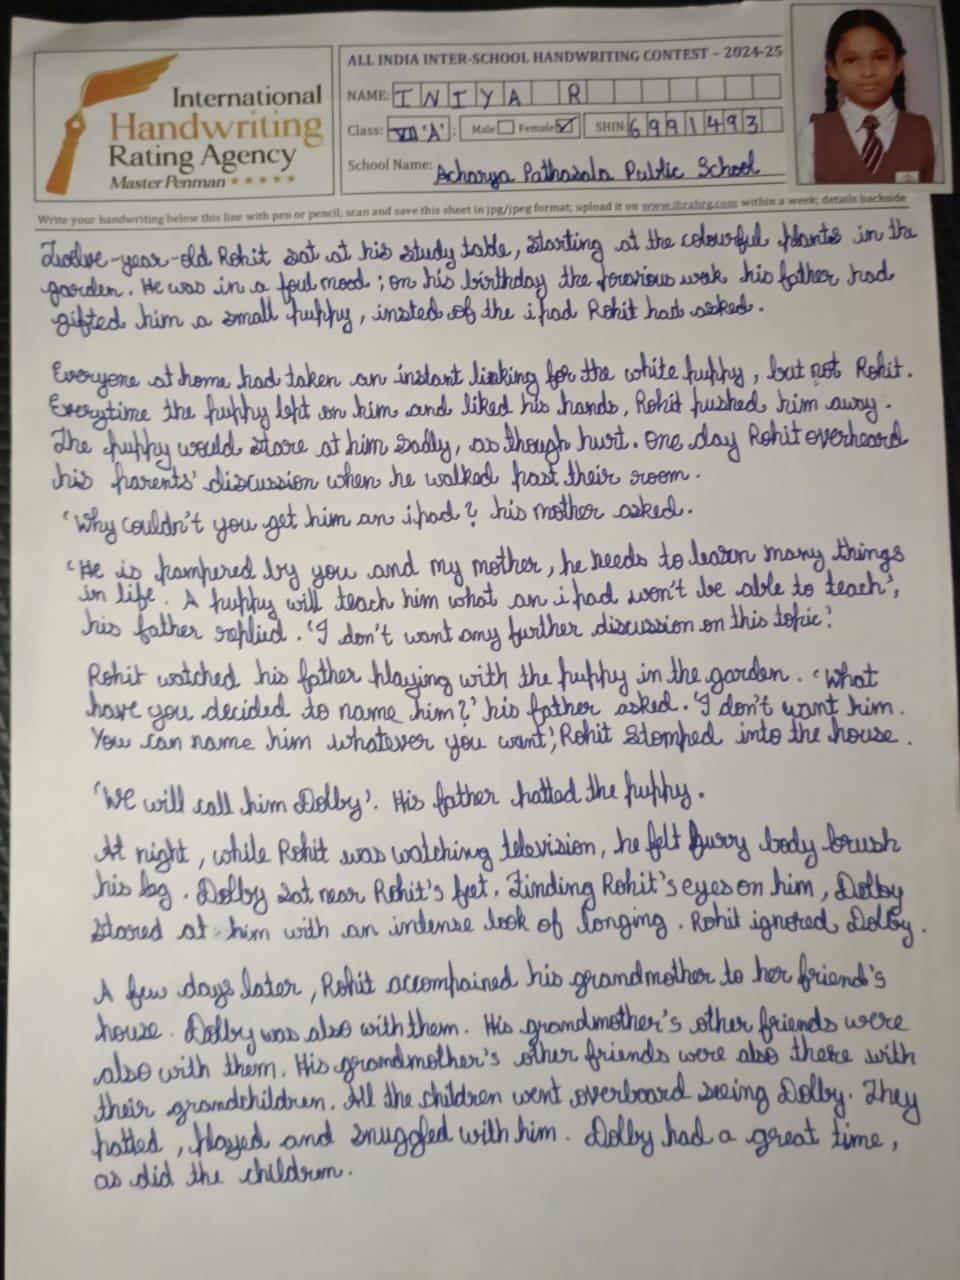 International
Handwriting
Rating Agency
Master Penman *****
ALL INDIA INTER-SCHOOL HANDWRITING CONTEST – 2024-25
NAME: INIYA R
Class: VII 'A' Male Female SHIN: 6991493
School Name: Acharya Pathasala Public School
Write your handwriting below this line with pen or pencil; scan and save this sheet in jpg/jpeg format; upload it on www.ihrahrg.com within a week; details backside
Twelve-year-old Rohit sat at his study table, starting at the colourful plants in the
garden. He was in a foul mood; on his birthday the previous week his father had
gifted him a small puppy, insted of the ipad Rohit had asked.
Everyone at home had taken an instant linking for the white puppy, but not Rohit.
Everytime the puppy left on him and liked his hands, Rohit pushed him away.
The puppy would stare at him sadly, as though hurt. One day Rohit overheard
his parents' discussion when he walked past their room.
'Why couldn't you get him an ipad? his mother asked.
'He is pampered by you and my mother, he needs to learn many things
in life. A puppy will teach him what an ipad won't be able to teach',
his father replied. 'I don't want any further discussion on this topic.'
Rohit watched his father playing with the puppy in the garden. 'What
have you decided to name him?' his father asked. 'I don't want him.
You can name him whatever you want', Rohit stomped into the house.
'We will call him Dolby'. His father patted the puppy.
At night, while Rohit was watching television, he felt furry body brush
his leg. Dolby sat near Rohit's feet. Finding Rohit's eyes on him, Dolby
stared at him with an indense look of longing. Rohit ignored Dolby.
A few days later, Rohit accompained his grandmother to her friend's
house. Dolby was also with them. His grandmother's other friends were
also with them. His grandmother's other friends were also there with
their grandchildren. All the children went overboard seeing Dolby. They
patted, played and snuggled with him. Dolby had a great time,
as did the children.